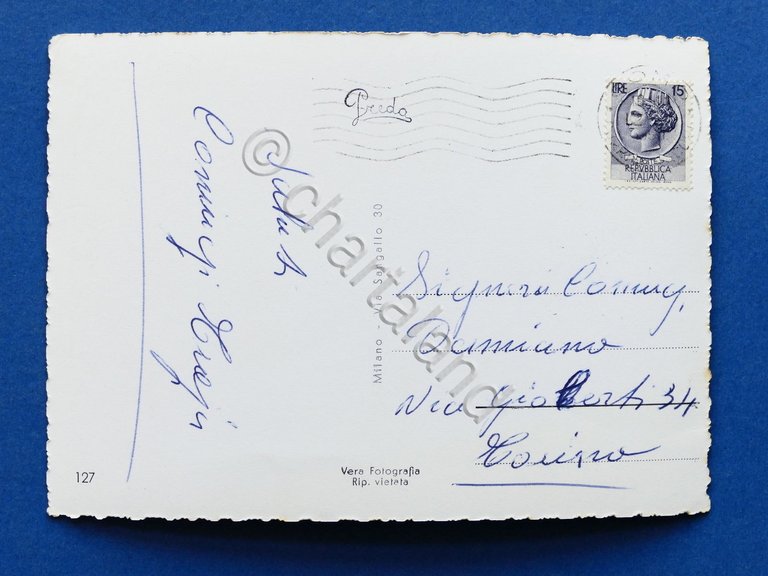 Saluti
Predo
LIRE 15
REPVBBLICA
ITALIANA
Milano - Via Sangallo 30
Signora
Damiano
Via Gioberti 34
Torino
Vera Fotografia
Rip. vietata
127
© chartaland